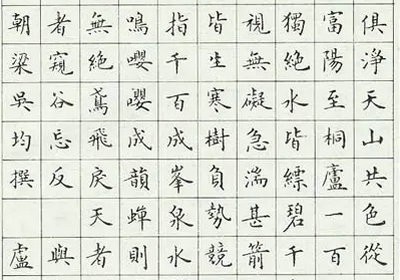 俱淨天山共色從
富陽至桐廬一百
獨絕水皆縹碧千
視無礙急湍甚箭
皆生寒樹負勢競
指千百成峯泉水
鳴嚶嚶成韻蟬則
無絕鳶飛戾天者
者窺谷忘反 與
朝梁吳均撰 盧